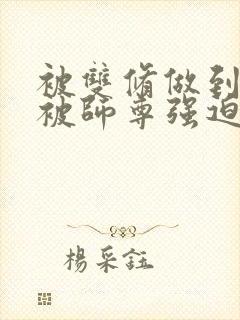 被雙脩做到
被師尊强迫
楊采鈺